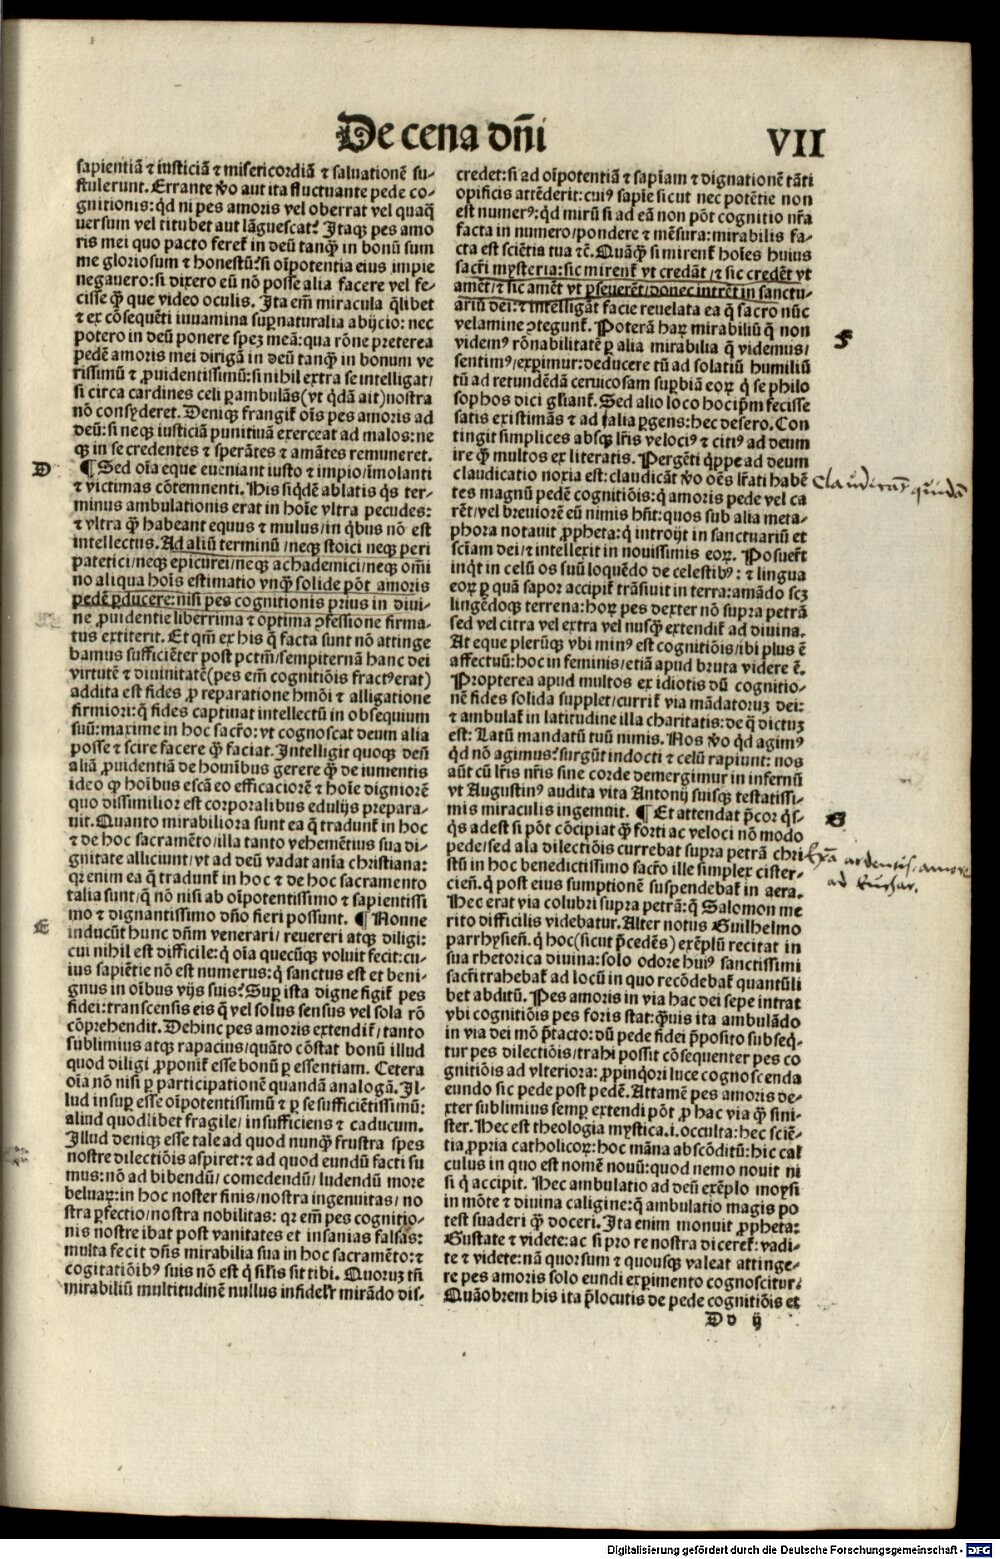 De cena dñi
VII
sapientiã ⁊ iusticiã ⁊ misericordiã ⁊ saluationẽ su-
stulerunt. Errante ỹo aut ita fluctuante pede co-
gnitionis: qd̃ ni pes amoris vel oberrat vel quaq̃
uersum vel titubet aut lãguescat? Itaqꝫ pes amo
ris mei quo pacto feret̃ in deũ tanq̃ in bonũ sum
me gloriosum ⁊ honestũ? si oĩpotentia eius impie
negauero: si dixero eũ nõ posse alia facere vel fe-
cisse q̃ que video oculis. Ita em̃ miracula q̃libet
⁊ ex cõsequẽti iuuamina supr̃naturalia abijcio: nec
potero in deũ ponere speꝫ meã: qua rõne preterea
pedẽ amoris mei dirigã in deũ tanq̃ in bonum ve
rissimũ ⁊ ꝓuidentissimũ: si nihil extra se intelligat/
si circa cardines celi ꝑambulãs (vt qdã ait) nostra
nõ consyderet. Deniqꝫ frangit̃ oĩs pes amoris ad
deũ: si neqꝫ iusticiã punitiuã exerceat ad malos: ne
qꝫ in se credentes ⁊ sperãtes ⁊ amãtes remuneret.
D
¶ Sed oĩa eque eueniant iusto ⁊ impio/ imolanti
⁊ victimas cõtemnenti. His siqdẽ ablatis q̃s ter-
minus ambulationis erat in hoĩe vltra pecudes:
⁊ vltra q̃ habeant equus ⁊ mulus/ in qbus nõ est
intellectus. Ad aliũ terminũ/ neqꝫ stoici neqꝫ peri
patetici/ neqꝫ epicurei/ neqꝫ achademici/ neqꝫ om̃i
no aliqua hoĩs estimatio vnq̃ solide põt amoris
pedẽ ꝑducere: nisi pes cognitionis prius in diui-
ne ꝓuidentie liberrima ⁊ optima ꝯfessione firma-
tus extiterit. Et qm̃ ex his q̃ facta sunt nõ attinge
bamus sufficiẽter post pctm̃/ sempiternã hanc dei
virtutẽ ⁊ diuinitatẽ (pes em̃ cognitiõis fractꝰ erat)
addita est fides ꝓ reparatione hmõi ⁊ alligatione
firmiori: q̃ fides captiuat intellectũ in obsequium
suũ: maxime in hoc sacr̃o: vt cognoscat deum alia
posse ⁊ scire facere q̃ faciat. Intelligit quoqꝫ deũ
aliã ꝓuidentiã de hominibus gerere q̃ de iumentis
ideo ꝙ hoĩbus escã eo efficaciorẽ ⁊ hoĩe digniorẽ
quo dissimilior est corporalibus edulijs prepara-
uit. Quanto mirabiliora sunt ea q̃ tradunt̃ in hoc
⁊ de hoc sacramẽto/ illa tanto vehemẽtius sua di-
gnitate alliciunt/ vt ad deũ vadat anĩa christiana:
qr enim ea q̃ tradunt̃ in hoc ⁊ de hoc sacramento
talia sunt/ q̃ nõ nisi ab oĩpotentissimo ⁊ sapientissi
E
mo ⁊ dignantissimo dño fieri possunt. ¶ Nonne
inducũt hunc dñm venerari/ reuereri atqꝫ diligi:
cui nihil est difficile: q̃ oĩa quecũqꝫ voluit fecit: cu-
ius sapiẽtie nõ est numerus: q̃ sanctus est et beni-
gnus in oĩbus vijs suis? Suꝑ ista digne figit̃ pes
fidei: transcensis eis q̃ vel solus sensus vel sola rõ
cõprehendit. Dehinc pes amoris extendit̃/ tanto
sublimius atqꝫ rapacius/ quãto cõstat bonũ illud
quod diligi ꝓponit̃ esse bonũ ꝑ essentiam. Cetera
oĩa nõ nisi ꝑ participationẽ quandã analogã. Il-
lud insuꝑ esse oĩpotentissimũ ⁊ ꝑ se sufficiẽtissimũ:
aliud quodlibet fragile/ insufficiens ⁊ caducum.
Illud deniqꝫ esse tale ad quod nunq̃ frustra spes
nostre dilectiõis aspiret: ⁊ ad quod eundũ facti su
mus: nõ ad bibendũ/ comedendũ/ ludendũ more
beluaꝝ: in hoc noster finis/ nostra ingenuitas/ no
stra ꝑfectio/ nostra nobilitas: qr em̃ pes cognitio-
nis nostre ibat post vanitates et insanias falsas:
multa fecit dñs mirabilia sua in hoc sacramẽto: ⁊
cogitatiõibꝰ suis nõ est q̃ sil̃is sit tibi. Quoruꝫ tñ
mirabiliũ multitudinẽ nullus infidel̃r mirãdo dis-
credet: si ad oĩpotentiã ⁊ sapĩam ⁊ dignationẽ tãti
opificis attẽderit: cuiꝰ sapĩe sicut nec potẽtie non
est numerꝰ: qd̃ mirũ si ad eã non põt cognitio nr̃a
facta in numero/ pondere ⁊ mẽsura: mirabilis fa-
cta est sciẽtia tua ⁊c̃. Quãq̃ si mirent̃ hoĩes huius
sacr̃i mysteria: sic mirent̃ vt credãt/ ⁊ sic credẽt vt
amẽt/ ⁊ sic amẽt vt ꝑseuerẽt/ donec intrẽt in sanctu-
ariũ dei: ⁊ intelligãt facie reuelata ea q̃ sacro nũc
velamine ꝯtegunt̃. Poterã haꝝ mirabiliũ q̃ non
F
videmꝰ rõnabilitatẽ ꝑ alia mirabilia q̃ videmus/
sentimꝰ/ exꝑimur: deducere tũ ad solatiũ humiliũ
tũ ad retundẽdã ceruicosam suꝑbiã eoꝝ q̃ se philo
sophos dici gl̃iant̃. Sed alio loco hoc ip̃m fecisse
satis existimãs ⁊ ad talia ꝑgens: hec desero. Con
tingit simplices absqꝫ lr̃is velociꝰ ⁊ citiꝰ ad deum
ire q̃ multos ex literatis. Pergẽti q̃ppe ad deum
claudicatio noxia est: claudicãt ỹo oẽs lr̃ati habẽ
Claudicant quidã
tes magnũ pedẽ cognitiõis: q̃ amoris pede vel ca
rẽt/ vel breuiorẽ eũ nimis hñt: quos sub alia meta-
phora notauit ꝓpheta: q̃ introijt in sanctuariũ et
sciãm dei/ ⁊ intellexit in nouissimis eoꝝ. Posuer̃t
inqt in celũ os suũ loquẽdo de celestibꝰ: ⁊ lingua
eoꝝ ꝑ quã sapor accipit̃ trãsiuit in terra: amãdo scꝫ
lingẽdoqꝫ terrena: hoꝝ pes dexter nõ supra petrã
sed vel citra vel extra vel nusq̃ extendit̃ ad diuina.
At eque plerũqꝫ vbi minꝰ est cognitiõis/ ibi plus ẽ
affectuũ: hoc in feminis/ etiã apud bruta videre ẽ.
Propterea apud multos ex idiotis dũ cognitio-
nẽ fides solida supplet/ currit̃ via mãdatoruꝫ dei:
⁊ ambulat̃ in latitudine illa charitatis: de q̃ dictuꝫ
est: Latũ mandatũ tuũ nimis. Nos ỹo qd̃ agimꝰ
qd̃ nõ agimus? surgũt indocti ⁊ celũ rapiunt: nos
aũt cũ lr̃is nr̃is sine corde demergimur in infernũ
vt Augustinꝰ audita vita Antonij suisqꝫ testatissi-
mis miraculis ingemuit. ¶ Et attendat p̃cor q̃s-
G
q̃s adest si põt cõcipiat q̃ forti ac veloci nõ modo
pede/ sed ala dilectiõis currebat supra petrã chri
Exã ardentis amoris
ad Euchar.
stũ in hoc benedictissimo sacr̃o ille simplex cister-
cieñ. q̃ post eius sumptionẽ suspendebat̃ in aera.
Hec erat via colubri supra petrã: q̃ Salomon me
rito difficilis videbatur. Alter notus Guilhelmo
parrhysieñ. q̃ hoc (sicut p̃cedẽs) exẽplũ recitat in
sua rhetorica diuina: solo odore huiꝰ sanctissimi
sacr̃i trahebat̃ ad locũ in quo recõdebat̃ quantũli
bet abditũ. Pes amoris in via hac dei sepe intrat
vbi cognitiõis pes foris stat: q̃uis ita ambulãdo
in via dei mõ p̃tacto: dũ pede fidei p̃posito subseq̃-
tur pes dilectiõis/ trahi possit cõsequenter pes co
gnitiõis ad vlteriora: ꝓpinqori luce cognoscenda
eundo sic pede post pedẽ. Attamẽ pes amoris de-
xter sublimius semꝑ extendi põt ꝓ hac via q̃ sini-
ster. Hec est theologia mystica .i. occulta: hec sciẽ-
tia ꝓpria catholicoꝝ: hoc mãna abscõditũ: hic cal
culus in quo est nomẽ nouũ: quod nemo nouit ni
si q̃ accipit. Hec ambulatio ad deũ exẽplo moysi
in mõte ⁊ diuina caligine: q̃ ambulatio magis po
test suaderi q̃ doceri. Ita enim monuit ꝓpheta:
Gustate ⁊ videte: ac si pro re nostra diceret̃: vadi-
te ⁊ videte: nã quorsum ⁊ quousqꝫ valeat attinge-
re pes amoris solo eundi exꝑimento cognoscitur:
Quãobrem his ita p̃locutis de pede cognitiõis et
Dd ij
Digitalisierung gefördert durch die Deutsche Forschungsgemeinschaft - DFG